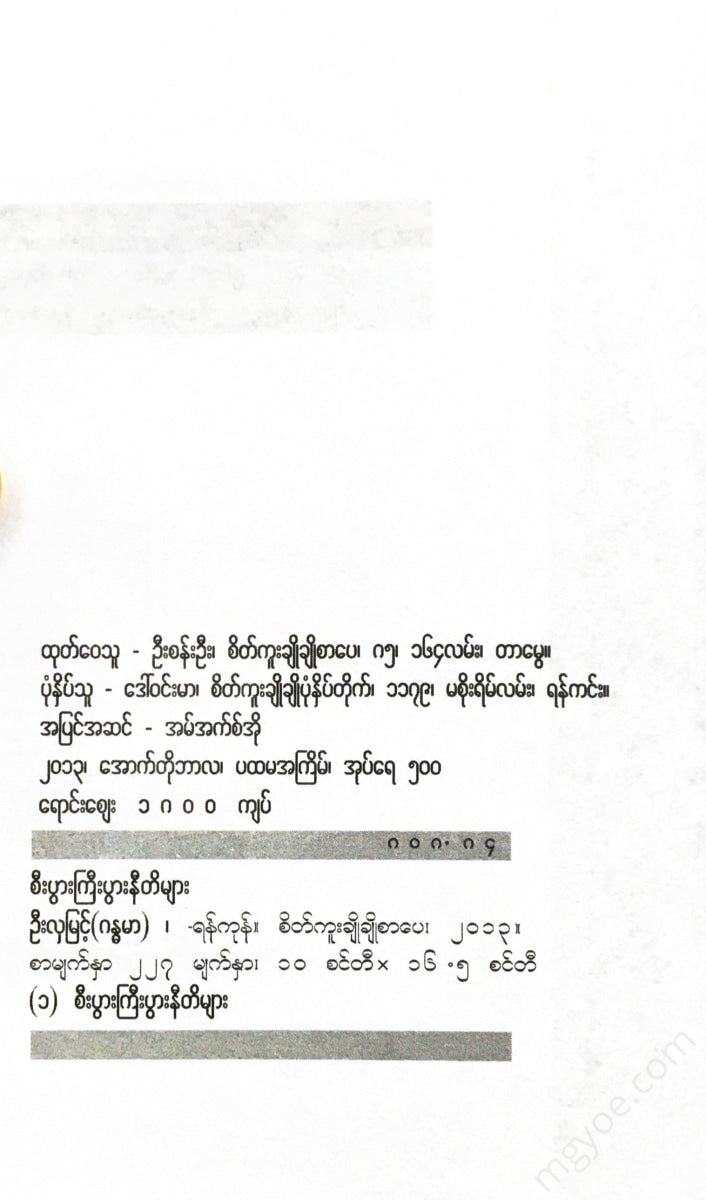 ထုတ်ဝေသူ - ဦးစန်းဦး၊ စိတ်ကူးချိုချိုစာပေ၊ ၈၅၊ ၁၆၄လမ်း၊ တာမွေ။
ပုံနှိပ်သူ - ဒေါ်ဝင်းမာ၊ စိတ်ကူးချိုချိုပုံနှိပ်တိုက်၊ ၁၁၇၉၊ မစိုးရိမ်လမ်း၊ ရန်ကင်း။
အပြင်အဆင် - အမ်အက်စ်အို
၂၀၁၃၊ အောက်တိုဘာလ၊ ပထမအကြိမ်၊ အုပ်ရေ ၅၀၀
ရောင်းဈေး ၁ ၈ ၀ ၀ ကျပ်
၈ ၀ ၈ . ၈ ၄
စီးပွားကြီးပွားနီတိများ
ဦးလှမြင့်(ဂန္ဓမာ) ၊ -ရန်ကုန်။ စိတ်ကူးချိုချိုစာပေ၊ ၂၀၁၃။
စာမျက်နှာ ၂၂၇ မျက်နှာ၊ ၁၀ စင်တီ × ၁၆ .၅ စင်တီ
(၁) စီးပွားကြီးပွားနီတိများ
mgyoe.com